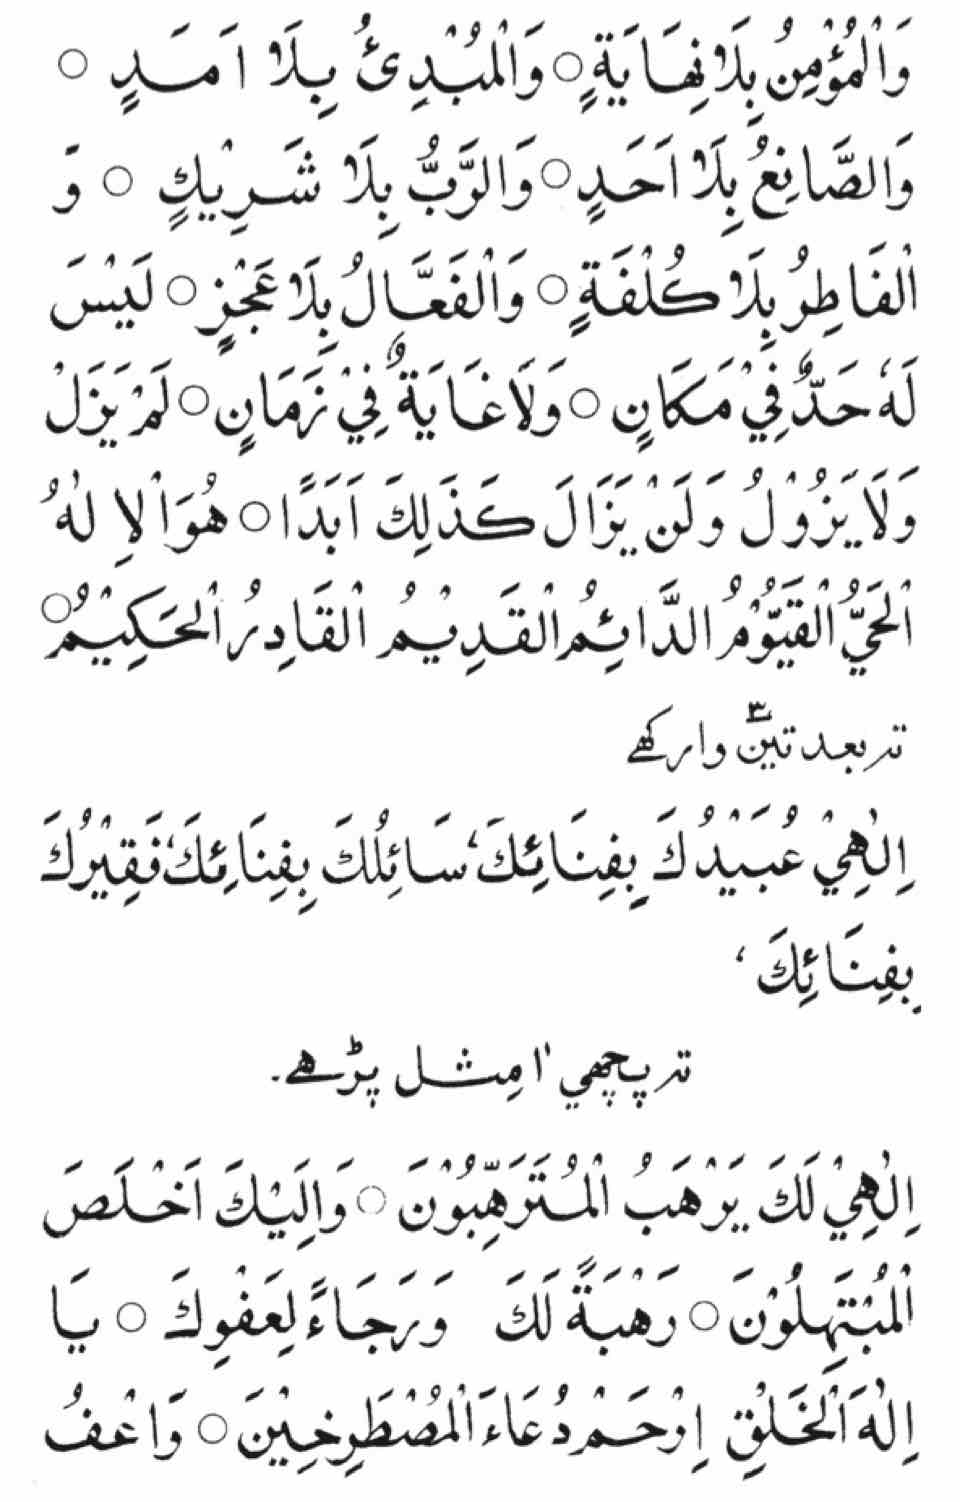 وَالْمُؤْمِنُ بِلَا نِهَايَةٍ ○ وَالْمُبْدِئُ بِلَا اَمَدٍ ○
وَالصَّانِعُ بِلَا اَحَدٍ ○ وَالرَّبُّ بِلَا شَرِيْكٍ ○ وَ
الْفَاطِرُ بِلَا كُلْفَةٍ ○ وَالْفَعَّالُ بِلَا عَجْزٍ ○ لَيْسَ
لَهٗ حَدٌّ فِيْ مَكَانٍ ○ وَلَا غَايَةٌ فِيْ زَمَانٍ ○ لَمْ يَزَلْ
وَلَا يَزُوْلُ وَلَنْ يَزَالَ كَذَلِكَ اَبَدًا ○ هُوَ الْاِلٰهُ
الْحَيُّ الْقَيُّوْمُ الدَّائِمُ الْقَدِيْمُ الْقَادِرُ الْحَكِيْمُ ○
تر بعد تين٣ وار كهے
اِلٰهِيْ عُبَيْدُكَ بِفِنَائِكَ، سَائِلُكَ بِفِنَائِكَ، فَقِيْرُكَ
بِفِنَائِكَ،
تر پچهي اْ مِثل پڑهے۔
اِلٰهِيْ لَكَ يَرْهَبُ الْمُتَرَهِّبُوْنَ ○ وَاِلَيْكَ اَخْلَصَ
الْمُبْتَهِلُوْنَ ○ رَهْبَةً لَكَ وَرَجَاءً لِعَفْوِكَ ○ يَا
اِلٰهَ الْخَلْقِ اِرْحَمْ دُعَاءَ الْمُصْطَرِخِيْنَ ○ وَاعْفُ